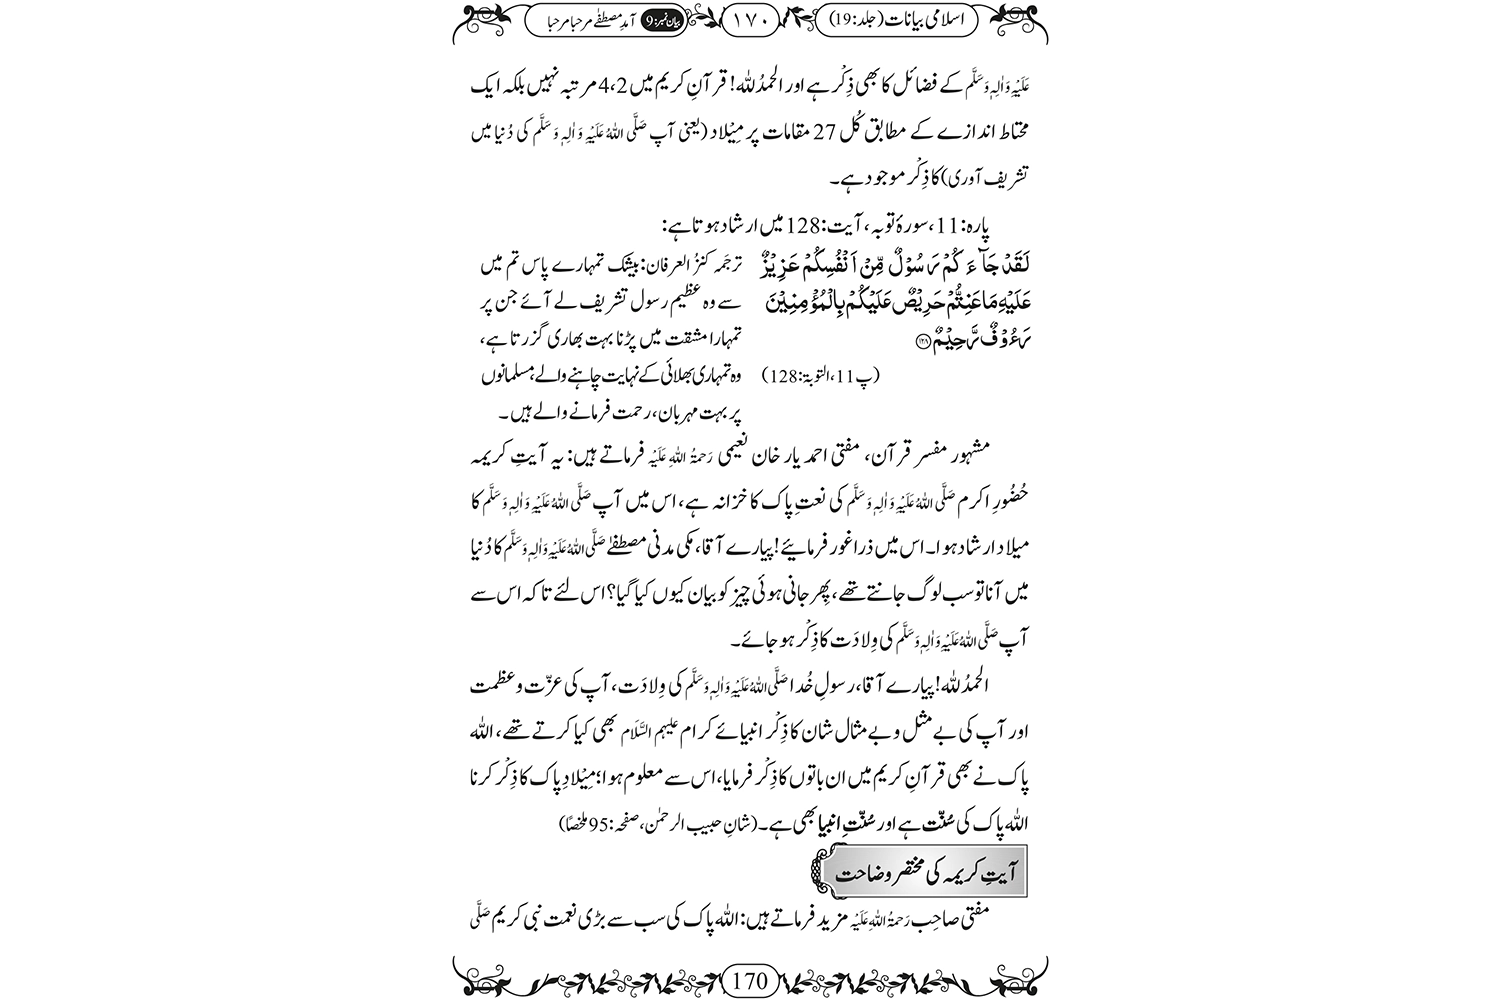 اسلامی بیانات (جلد:19)
۱۷۰
بیان نمبر:9 آمدِ مصطفٰے مرحبا مرحبا
عَلَیْہِ وَاٰلِہٖ وَسَلَّم کے فضائل کا بھی ذِکْر ہے اور الحمدُ للہ! قرآنِ کریم میں 4،2 مرتبہ نہیں بلکہ ایک
محتاط اندازے کے مطابق کُل 27 مقامات پر مِیْلاد (یعنی آپ صَلَّی اللہُ عَلَیْہِ وَاٰلِہٖ وَسَلَّم کی دُنیا میں
تشریف آوری) کا ذِکْر موجود ہے۔
پارہ:11، سورۂ توبہ، آیت:128 میں ارشاد ہوتا ہے:
لَقَدْ جَآءَكُمْ رَسُوْلٌ مِّنْ اَنْفُسِكُمْ عَزِیْزٌ
عَلَیْهِ مَا عَنِتُّمْ حَرِیْصٌ عَلَیْكُمْ بِالْمُؤْمِنِیْنَ
رَءُوْفٌ رَّحِیْمٌ ﴿۱۲۸﴾
(پ11، التوبۃ:128)
ترجَمہ کنزُ العرفان: بیشک تمہارے پاس تم میں
سے وہ عظیم رسول تشریف لے آئے جن پر
تمہارا مشقت میں پڑنا بہت بھاری گزرتا ہے،
وہ تمہاری بھلائی کے نہایت چاہنے والے، مسلمانوں
پر بہت مہربان، رحمت فرمانے والے ہیں۔
مشہور مفسر قرآن، مفتی احمد یار خان نعیمی رَحمۃُ اللہِ عَلَیْہ فرماتے ہیں: یہ آیتِ کریمہ
حُضُورِ اکرم صَلَّی اللہُ عَلَیْہِ وَاٰلِہٖ وَسَلَّم کی نعتِ پاک کا خزانہ ہے، اس میں آپ صَلَّی اللہُ عَلَیْہِ وَاٰلِہٖ وَسَلَّم کا
میلاد ارشاد ہوا۔ اس میں ذرا غور فرمائیے! پیارے آقا، مکی مدنی مصطفےٰ صَلَّی اللہُ عَلَیْہِ وَاٰلِہٖ وَسَلَّم کا دُنیا
میں آنا تو سب لوگ جانتے تھے، پِھر جانی ہوئی چیز کو بیان کیوں کیا گیا؟ اس لئے تاکہ اس سے
آپ صَلَّی اللہُ عَلَیْہِ وَاٰلِہٖ وَسَلَّم کی وِلادَت کا ذِکْر ہو جائے۔
الحمدُ للہ! پیارے آقا، رسولِ خُدا صَلَّی اللہُ عَلَیْہِ وَاٰلِہٖ وَسَلَّم کی وِلادَت، آپ کی عزّت و عظمت
اور آپ کی بے مثل و بے مثال شان کا ذِکْر انبیائے کرام علیہم السَّلَام بھی کیا کرتے تھے، اللہ
پاک نے بھی قرآنِ کریم میں ان باتوں کا ذِکْر فرمایا، اس سے معلوم ہوا؛ مِیْلادِ پاک کا ذِکْر کرنا
اللہ پاک کی سُنّت ہے اور سُنّتِ انبیا بھی ہے۔ (شانِ حبیب الرحمٰن، صفحہ:95 ملخصاً)
آیتِ کریمہ کی مختصر وضاحت
مفتی صاحِب رَحمۃُ اللہِ عَلَیْہ مزید فرماتے ہیں: اللہ پاک کی سب سے بڑی نعمت نبی کریم صَلَّی
170